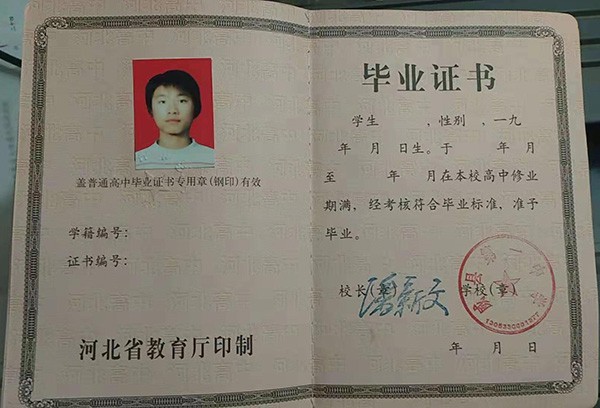 盖普通高中毕业证书专用章(钢印)有效
学籍编号：
证书编号：
河北省教育厅印制
毕业证书
学生 ，性别 ，一九
年 月 日生。于 年 月
至 年 月在本校高中修业
期满，经考核符合毕业标准，准于
毕业。
校长(章) 学校(章)
年 月 日